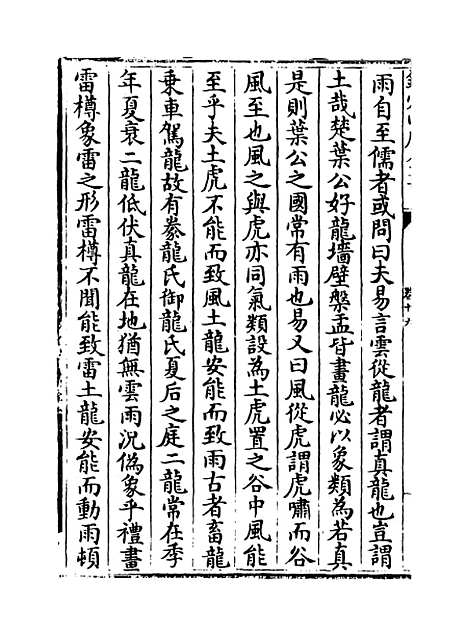 雨自至儒者或問曰夫易言雲從龍者謂真龍也豈謂
土哉楚葉公好龍墻壁槃盂皆畫龍必以象類為若真
是則葉公之國常有雨也易又曰風從虎謂虎嘯而谷
風至也風之與虎亦同氣類設為土虎置之谷中風能
至乎夫土虎不能而致風土龍安能而致雨古者畜龍
乗車駕龍故有豢龍氏御龍氏夏后之庭二龍常在季
年夏衰二龍低伏真龍在地猶無雲雨況偽象乎禮畫
雷樽象雷之形雷樽不聞能致雷土龍安能而動雨頓